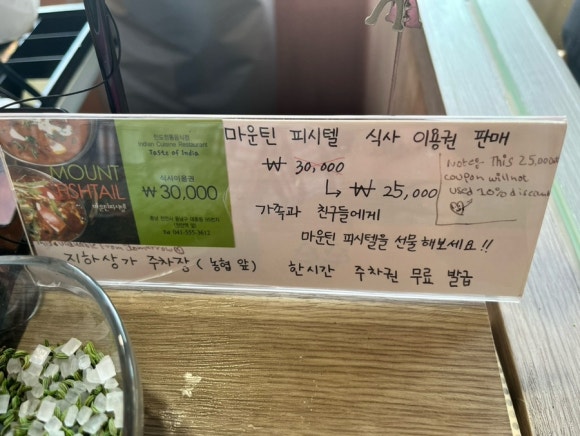 마운틴 피시텔 식사 이용권 판매
₩ 30,000
↳ ₩ 25,000
가족과 친구들에게
마운틴 피시텔을 선물 해보세요!!
지하상가 주차장 (농협 앞) 한시간 주차권 무료 발급
Note:- This 25,000
coupon will not
used 20% discount
인도전통음식점
Indian Cuisine Restaurant
Taste of India
MOUNT
FISHTAIL
식사이용권
₩ 30,000
Tel. 041-555-3612